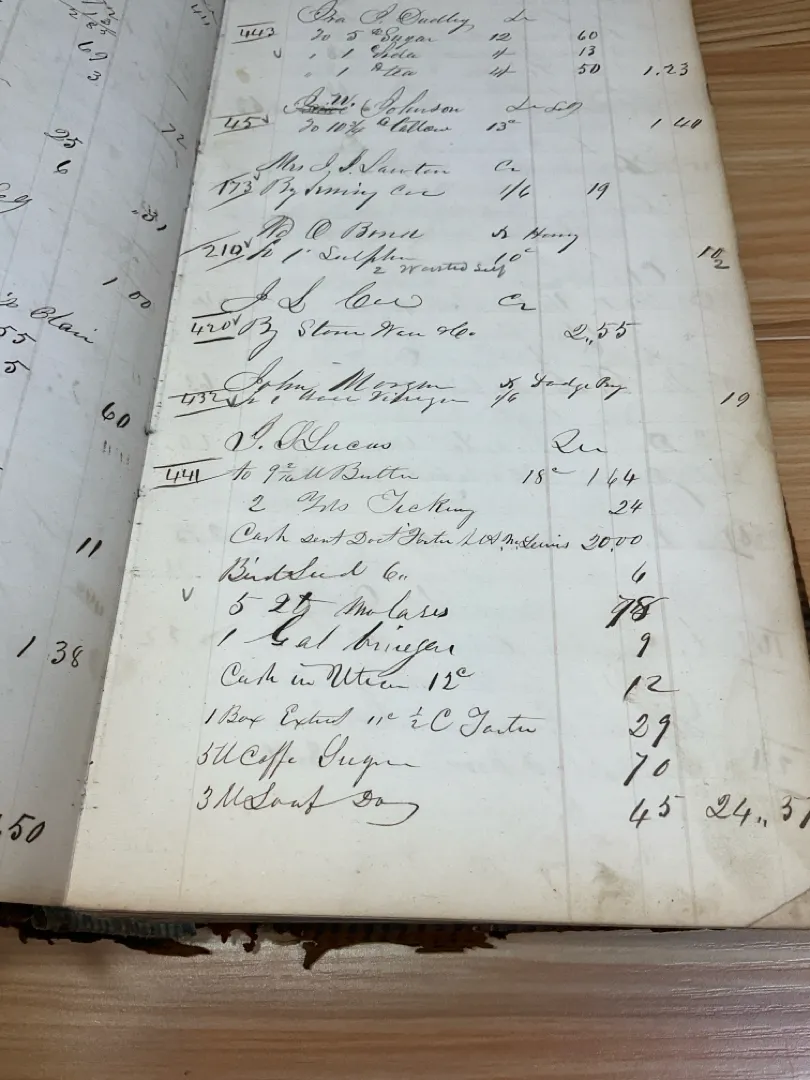 1 00
Blair
55
5
60
11
1 38
50
25
6
Ira J. Dudley Dr
443 To 5 # Sugar 12 60
" 1 " Soda 4 13
" 1 # tea 4/ 50 1.23
J. W. Johnson Dr
45 To 10 3/4 # tallow 13c 1 40
Mrs J. J. Lawton Cr
173 By 1/6 19
Wd O Bond Dr Henry
210 To 1 Sulphur 10c 10
2 Worsted
J L Coe Cr
420 By Stone Ware &c. 2,,55
John Morgan Dr
432 Vinegar 1/6 19
J. S Lucas Dr
441 to 9 2/16 ll Butter 18c 1 64
2 Yds Ticking 24
Cash sent Doct Foster by Lewis 20.00
Bird Seed 6,, 6
5 Qts Molases 78
1 Gal Vinegar 9
Cash in Utica 12c 12
1 Box Extract 11c 1/2 C Tarter 29
5 ll Coffe Sugar 70
3 ll Loaf Do 45 24,,37